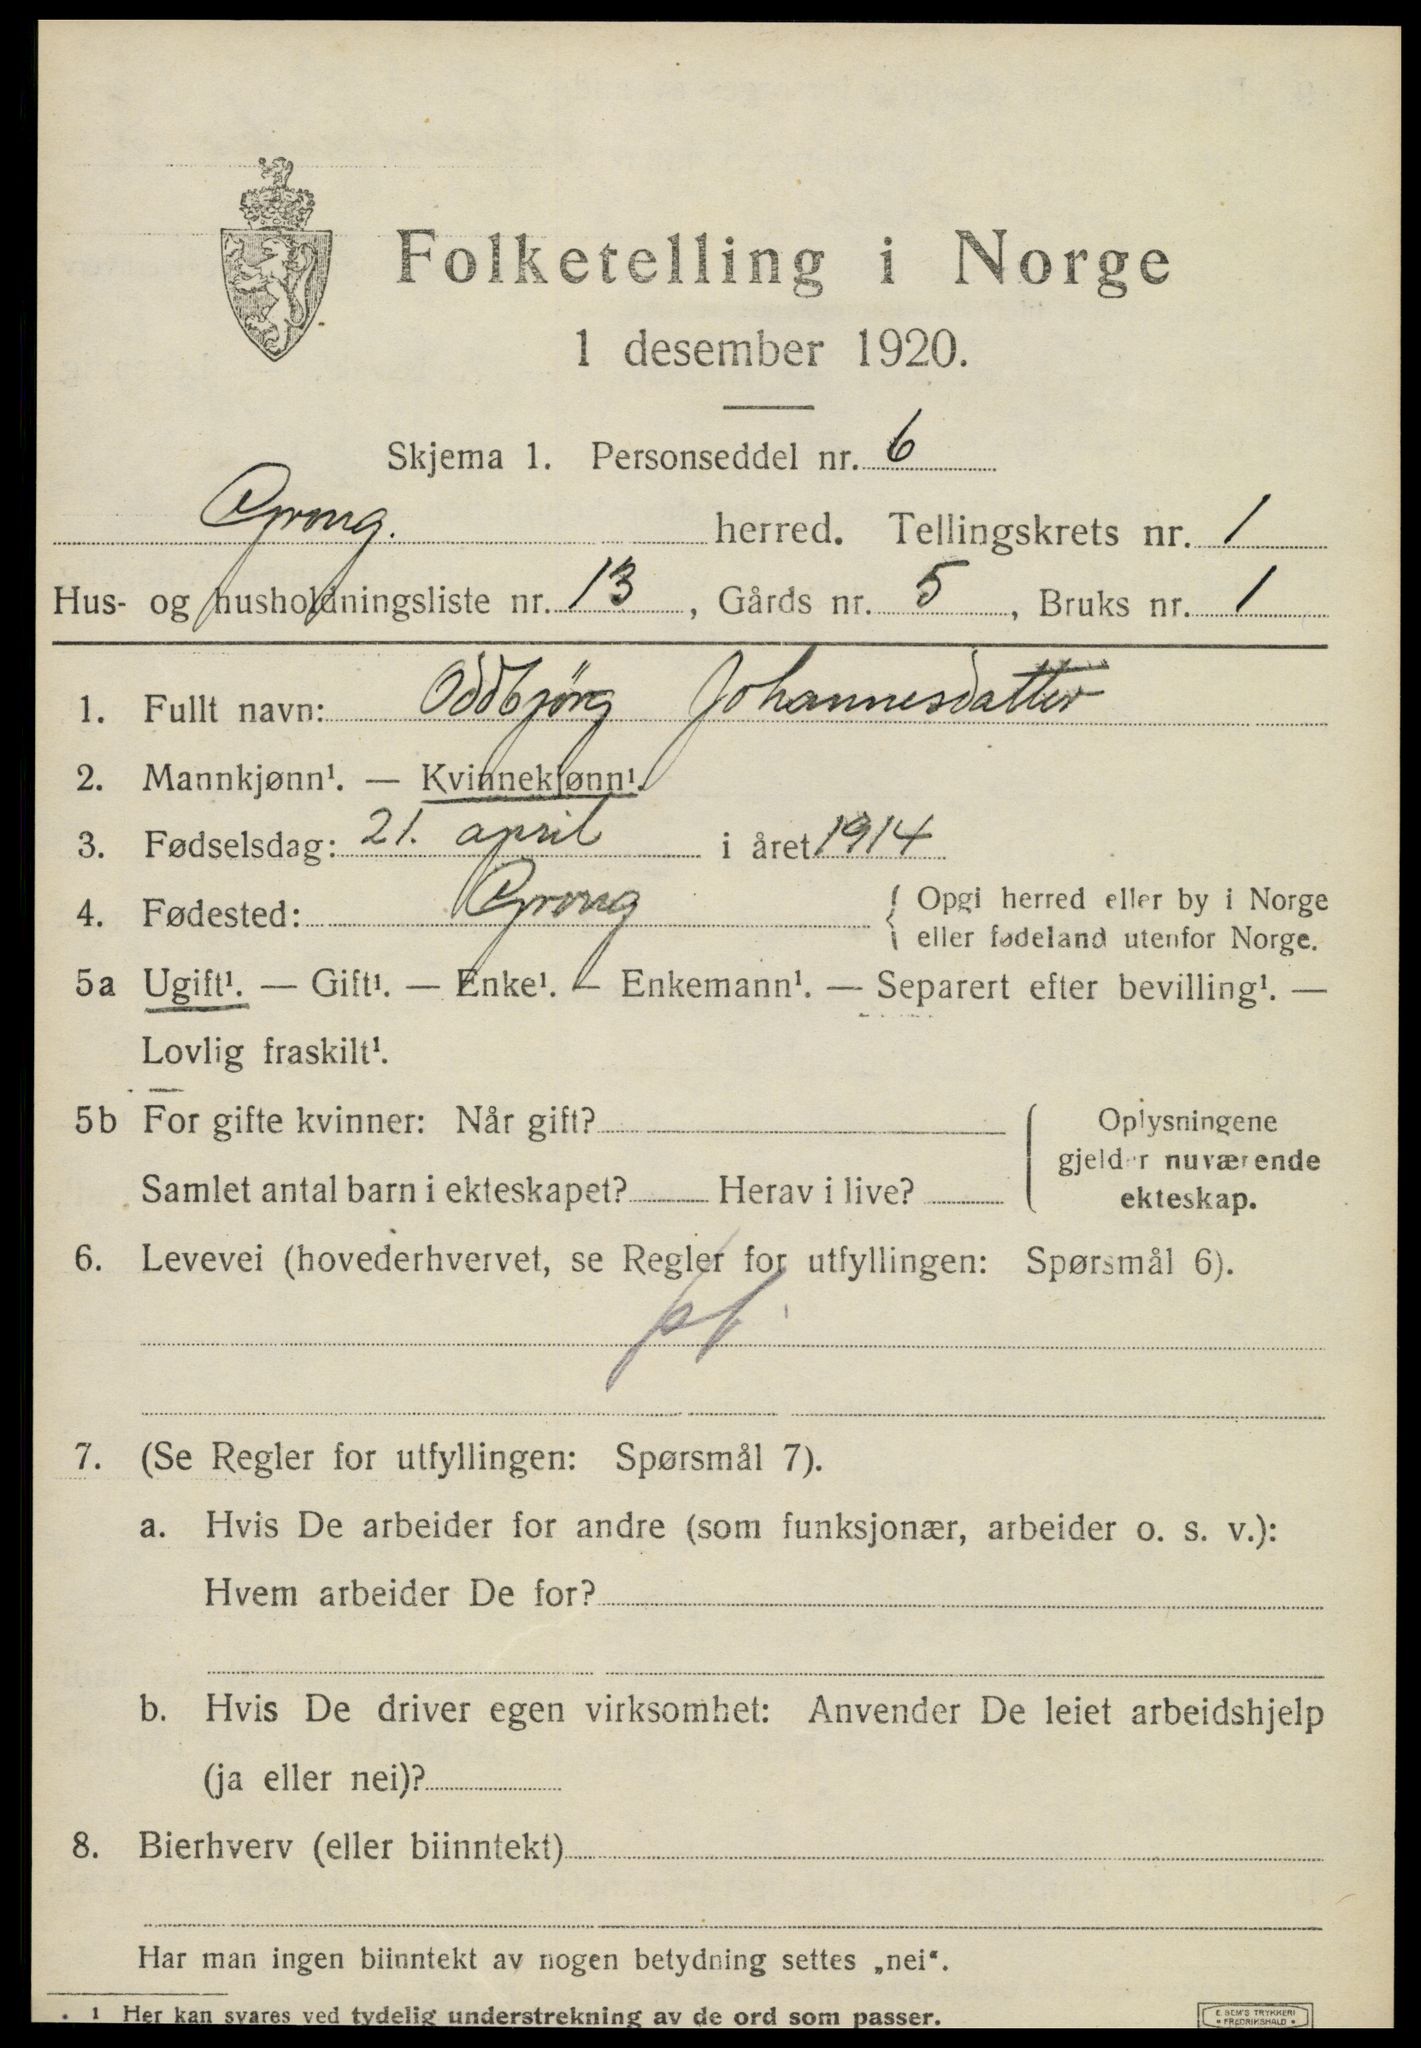 Folketelling i Norge
1 desember 1920.
Skjema 1. Personseddel nr. 6
Grong. herred. Tellingskrets nr. 1
Hus- og husholdningsliste nr. 13, Gårds nr. 5, Bruks nr. 1
1. Fullt navn: Oddbjörg Johannesdatter
2. Mannkjønn¹. — Kvinnekjønn¹.
3. Fødselsdag: 21. april i året 1914
4. Fødested: Grong { Opgi herred eller by i Norge
eller fødeland utenfor Norge.
5a Ugift¹. — Gift¹. — Enke¹. — Enkemann¹. — Separert efter bevilling¹. —
Lovlig fraskilt¹.
5b For gifte kvinner: Når gift?
Samlet antal barn i ekteskapet? Herav i live?
( Oplysningene
gjelder nuværende
ekteskap.
6. Levevei (hovederhvervet, se Regler for utfyllingen: Spørsmål 6).
7. (Se Regler for utfyllingen: Spørsmål 7).
a. Hvis De arbeider for andre (som funksjonær, arbeider o. s. v.):
Hvem arbeider De for?
b. Hvis De driver egen virksomhet: Anvender De leiet arbeidshjelp
(ja eller nei)?
8. Bierhverv (eller biinntekt)
Har man ingen biinntekt av nogen betydning settes „nei“.
¹ Her kan svares ved tydelig understrekning av de ord som passer.
E. SEM'S TRYKKERI
• FREDRIKSHALD •